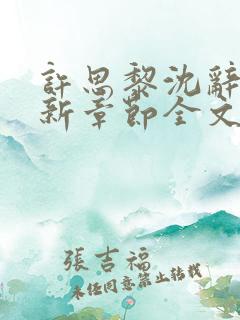 許思黎沈辭
新章節全文
張吉福
未經同意禁止轉載